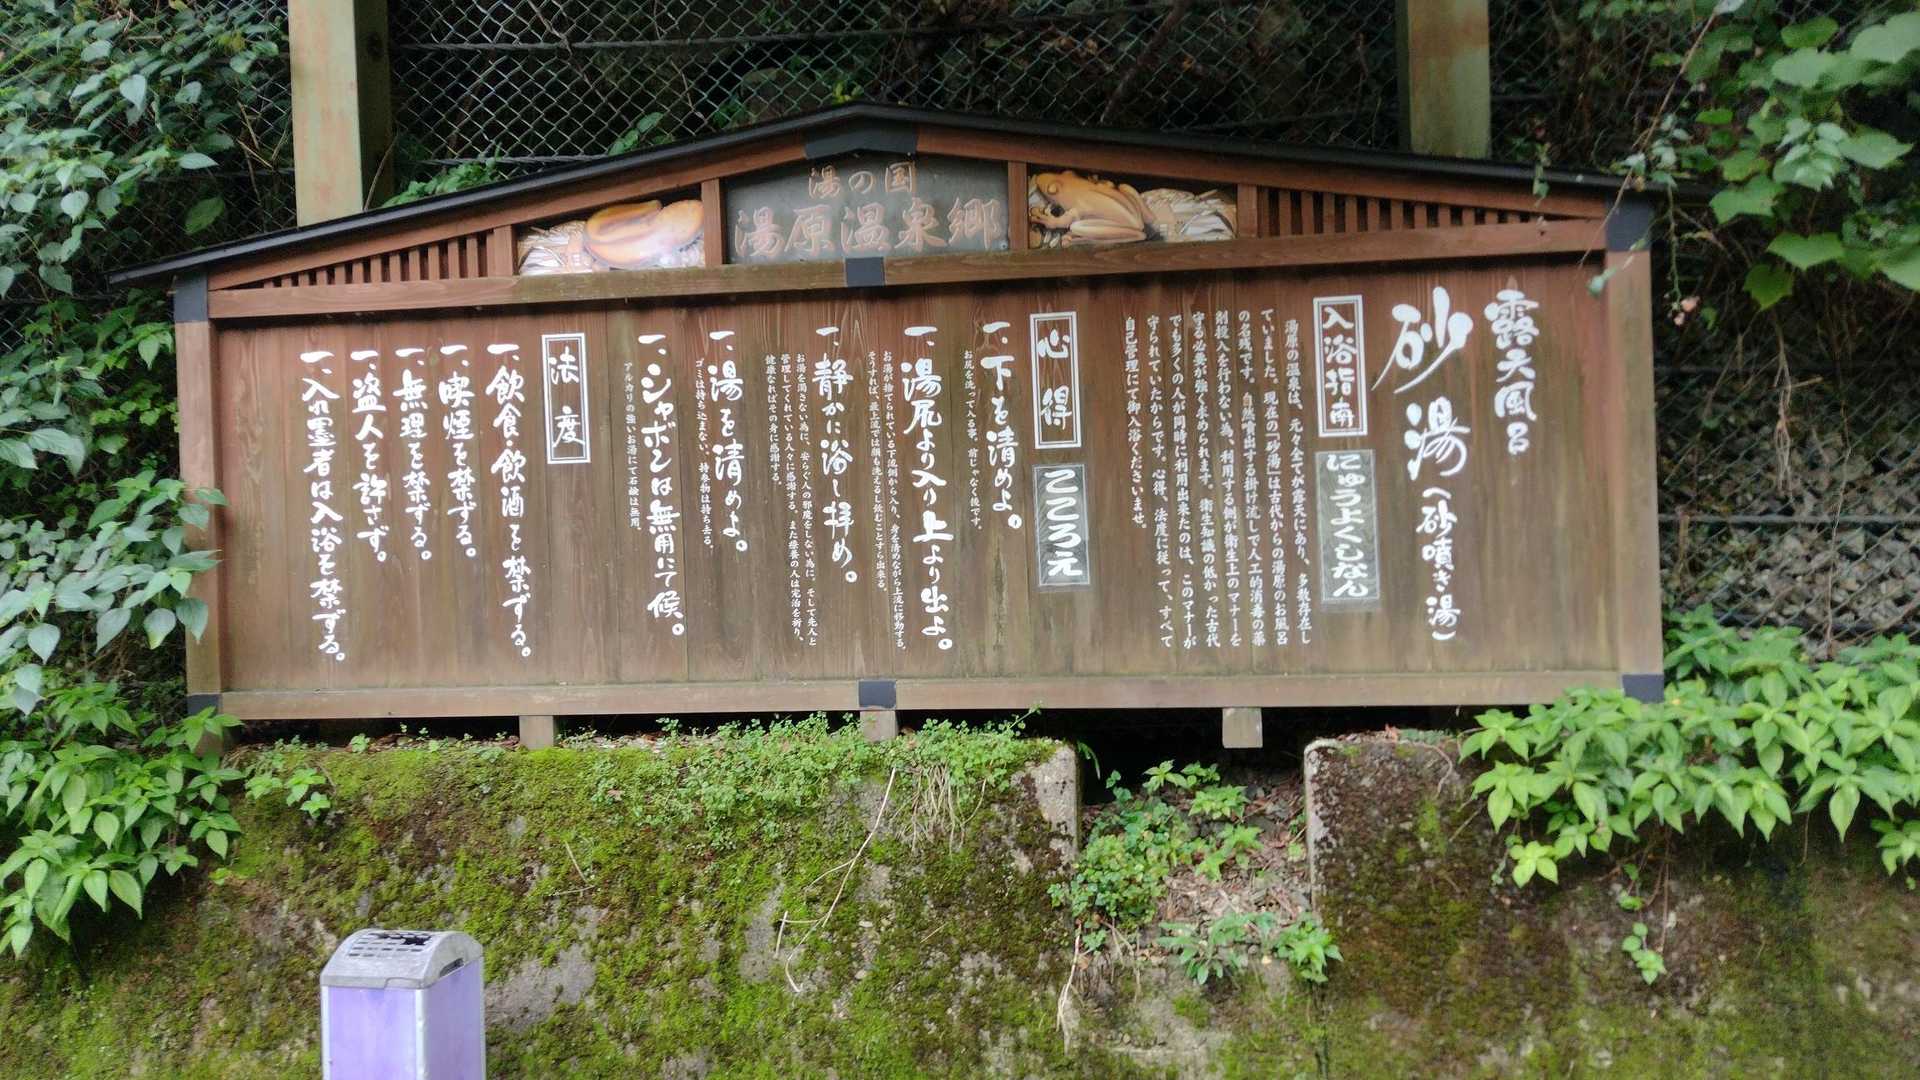 湯の国
湯原温泉郷
露天風呂
砂湯(砂噴き湯)
入浴指南
にゅうよくしなん
湯原の温泉は、元々全てが露天にあり、多数存在し
ていました。現在の「砂湯」は古代からの湯原のお風呂
の名残です。自然噴出する掛け流しで人工的消毒の薬
剤投入を行わない為、利用する側が衛生上のマナーを
守る必要が強く求められます。衛生知識の低かった古代
でも多くの人が同時に利用出来たのは、このマナーが
守られていたからです。心得、法度に従って、すべて
自己管理にて御入浴くださいませ。
心得
こころえ
一、下を清めよ。
お尻を洗って入る事。前じゃなく後です。
一、湯尻より入り上より出よ。
お湯が捨てられている下流側から入り、身を清めながら上流に移動する。
そうすれば、最上流では顔も洗えるし飲むことすら出来る。
一、静かに浴し拝め。
お湯を濁さない為に、安らぐ人の邪魔をしない為に。そして先人と
管理してくれている人々に感謝する。また療養の人は完治を祈り、
健康なればその身に感謝する。
一、湯を清めよ。
ゴミは持ち込まない、持参物は持ち去る。
一、シャボンは無用にて候。
アルカリの強いお湯にて石鹸は無用。
法度
一、飲食・飲酒を禁ずる。
一、喫煙を禁ずる。
一、無理を禁ずる。
一、盗人を許さず。
一、入れ墨者は入浴を禁ずる。